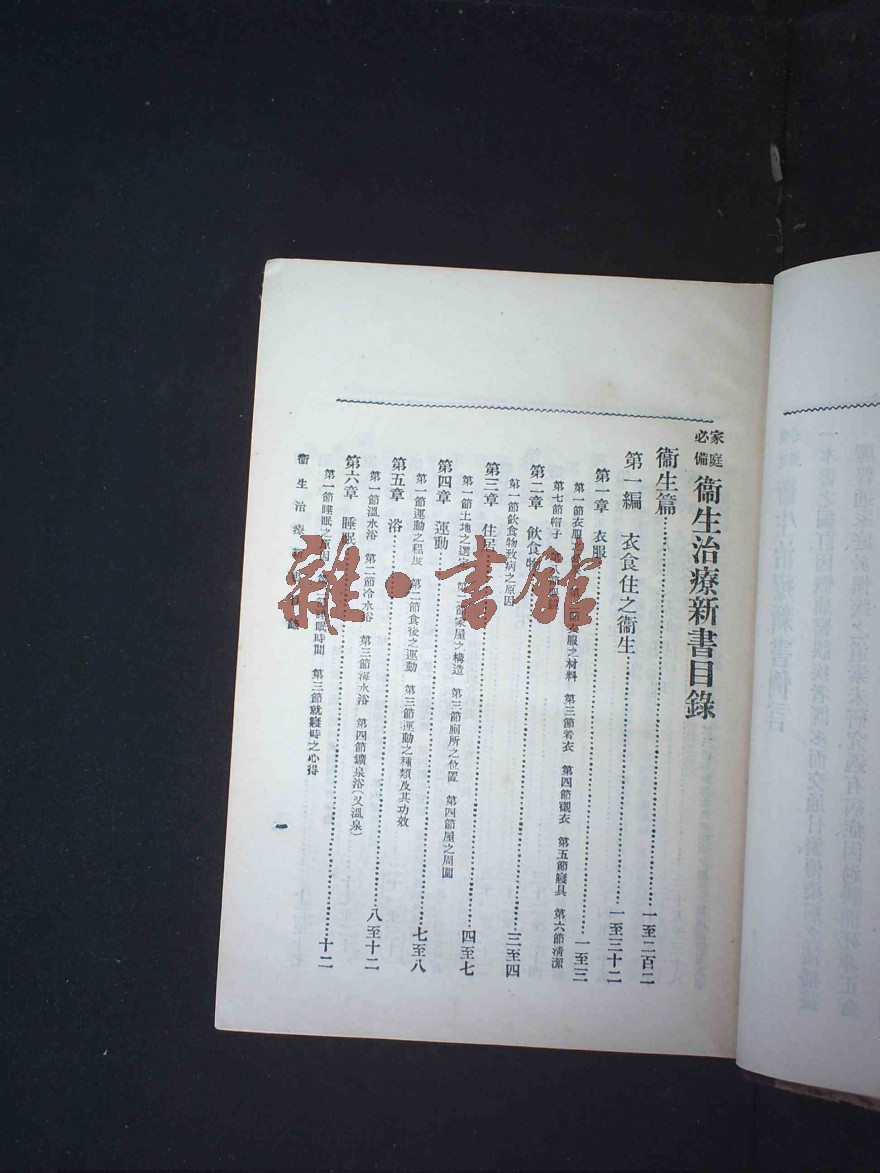 家庭必備 衞生治療新書目錄
衞生篇……一至二百二
第一編 衣食住之衞生……一至三十二
第一章 衣服……一至三
第一節衣服 衣服之材料 第三節着衣 第四節襯衣 第五節寢具 第六節淸潔
第七節帽子
第二章 飲食物……三至四
第一節飲食物致病之原因
第三章 住居……四至七
第一節土地之選定 第二節家屋之構造 第三節廁所之位置 第四節屋之周圍
第四章 運動……七至八
第一節運動之程度 第二節食後之運動 第三節運動之種類及其功效
第五章 浴……八至十二
第一節溫水浴 第二節冷水浴 第三節海水浴 第四節鑛泉浴(又溫泉)
第六章 睡眠……十二
第一節睡眠之原因 睡眠時間 第三節就寢時之心得
衞生治療新書目錄
一
雜·書館